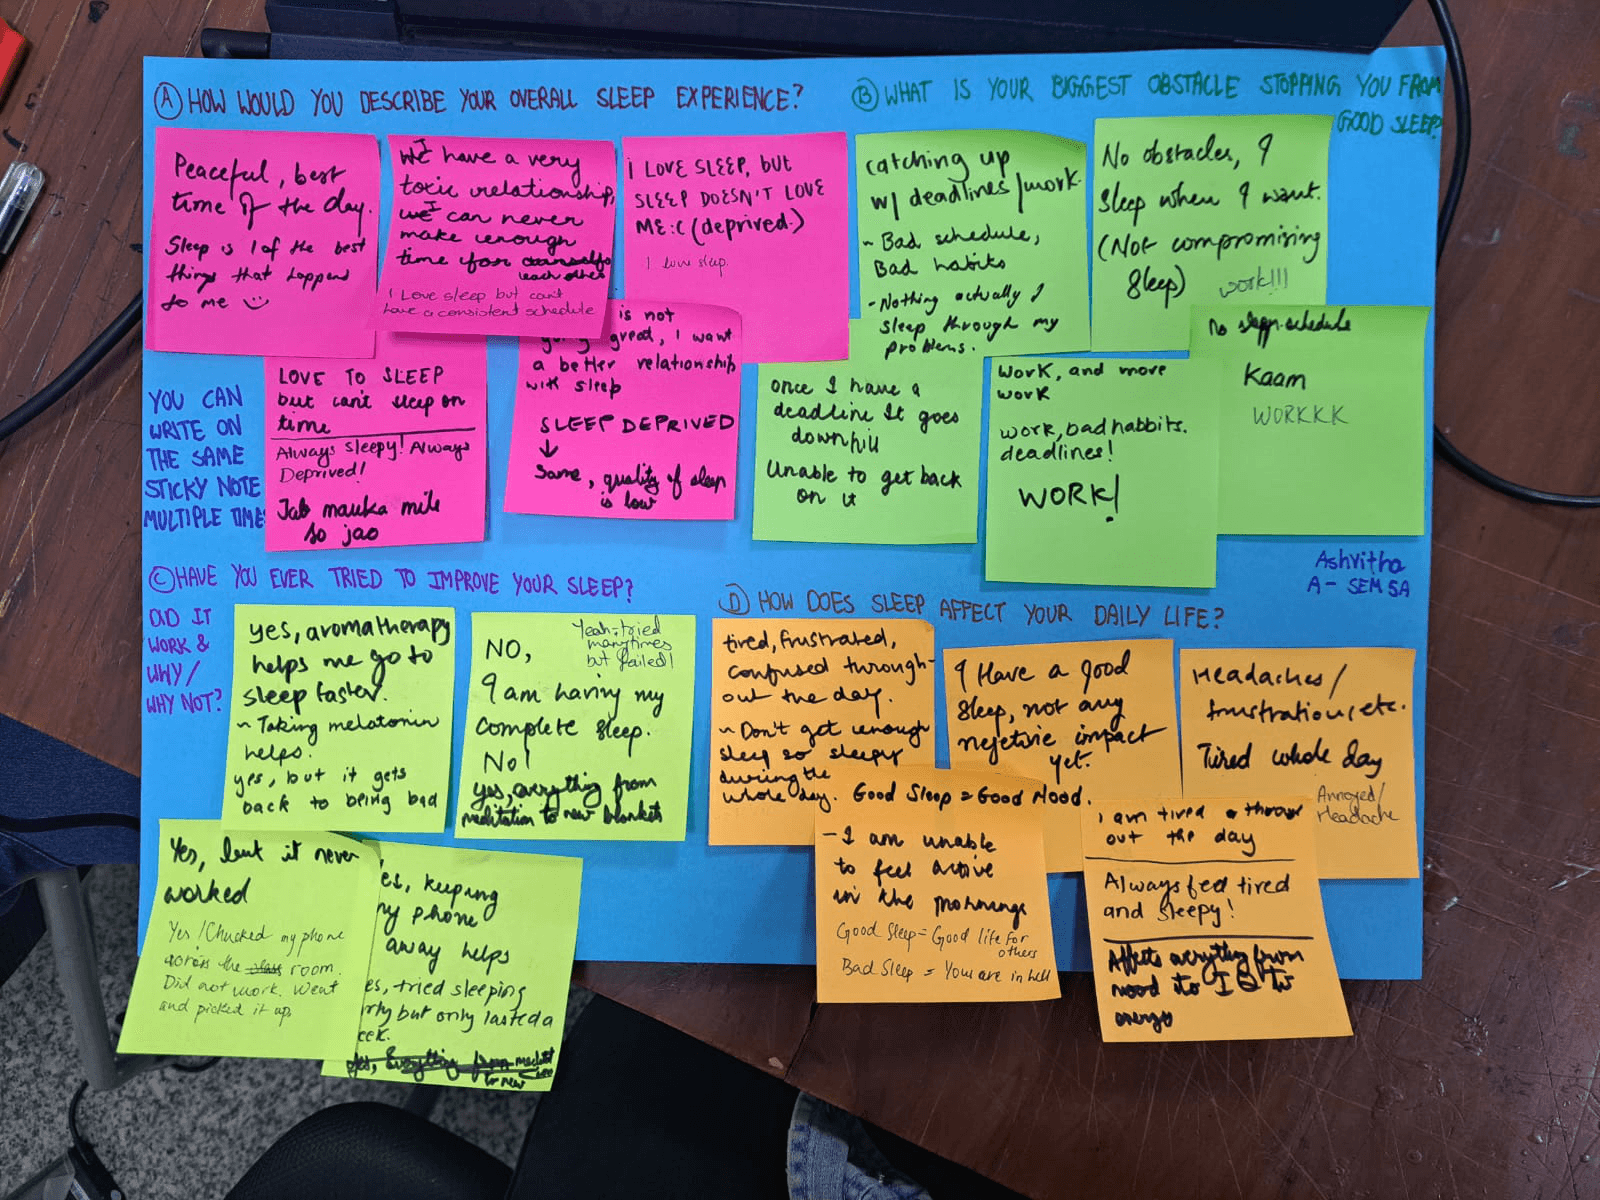 A HOW WOULD YOU DESCRIBE YOUR OVERALL SLEEP EXPERIENCE?
Peaceful, best
time of the day.
Sleep is 1 of the best
things that happend
to me
I have a very
toxic relationship,
I can never
make enough
time for
each other
I Love sleep but can't
have a consistent schedule
I LOVE SLEEP, BUT
SLEEP DOESN'T LOVE
ME :C (deprived.)
I love sleep.
LOVE TO SLEEP
but can't sleep on
time
Always sleepy! Always
Deprived!
Jab mauka mile
so jao
is not
great, I want
a better relationship
with sleep
SLEEP DEPRIVED
↓
Same, quality of sleep
is low
YOU CAN
WRITE ON
THE SAME
STICKY NOTE
MULTIPLE TIMES
B WHAT IS YOUR BIGGEST OBSTACLE STOPPING YOU FROM
GOOD SLEEP?
catching up
w/ deadlines/work.
~ Bad schedule,
Bad habits
- Nothing actually I
sleep through my
problems.
No obstacles, I
sleep when I want.
(Not compromising
sleep)
work!!!
once I have a
deadline It goes
downhill
Unable to get back
on it
Work, and more
work
work, bad habbits.
deadlines!
WORK!
No schedule
Kaam
WORKKK
Ashvitha
A - SEM 5A
C HAVE YOU EVER TRIED TO IMPROVE YOUR SLEEP?
DID IT
WORK &
WHY/
WHY NOT?
yes, aromatherapy
helps me go to
sleep faster.
~ Taking melatonin
helps.
yes, but it gets
back to being bad
Yeah tried
many times
but failed!
NO,
I am having my
complete sleep.
No!
yes, everything from
meditation to new blankets
Yes, but it never
worked
Yes! Chucked my phone
across the room.
Did not work. Went
and picked it up
es, keeping
ny phone
away helps
es, tried sleeping
rly but only lasted a
eek.
Yes, Everything from
to new
D HOW DOES SLEEP AFFECT YOUR DAILY LIFE?
tired, frustrated,
confused through-
out the day.
~ Don't get enough
sleep so sleepy
during the
whole day.
I Have a good
sleep, not any
negetive impact
yet.
Headaches/
frustration, etc.
Tired whole day
Annoyed/
Headache
Good Sleep = Good Mood.
- I am unable
to feel active
in the mornings
Good Sleep = Good life for
others
Bad Sleep = You are in hell
I am tired throu
out the day
Always feel tired
and sleepy!
Affects everything from
mood to IQ to
energy